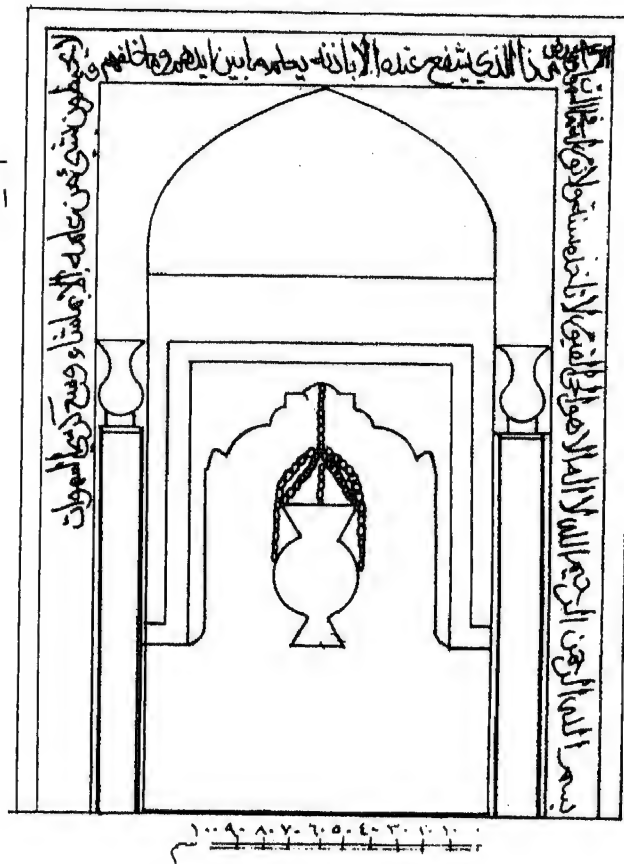 بسم الله الرحمن الرحيم الله لا اله الا هو الحي القيوم لا تاخذه سنة ولا نوم
من ذا الذي يشفع عنده الا باذنه يعلم ما بين ايدهم وما خلفهم و
لا يحيطون بشيء من علمه الا بما شاء وسع كرسيه السموات
١٠٠ ٩٠ ٨٠ ٧٠ ٦٠ ٥٠ ٤٠ ٣٠ ٢٠ ١٠ ٠
م